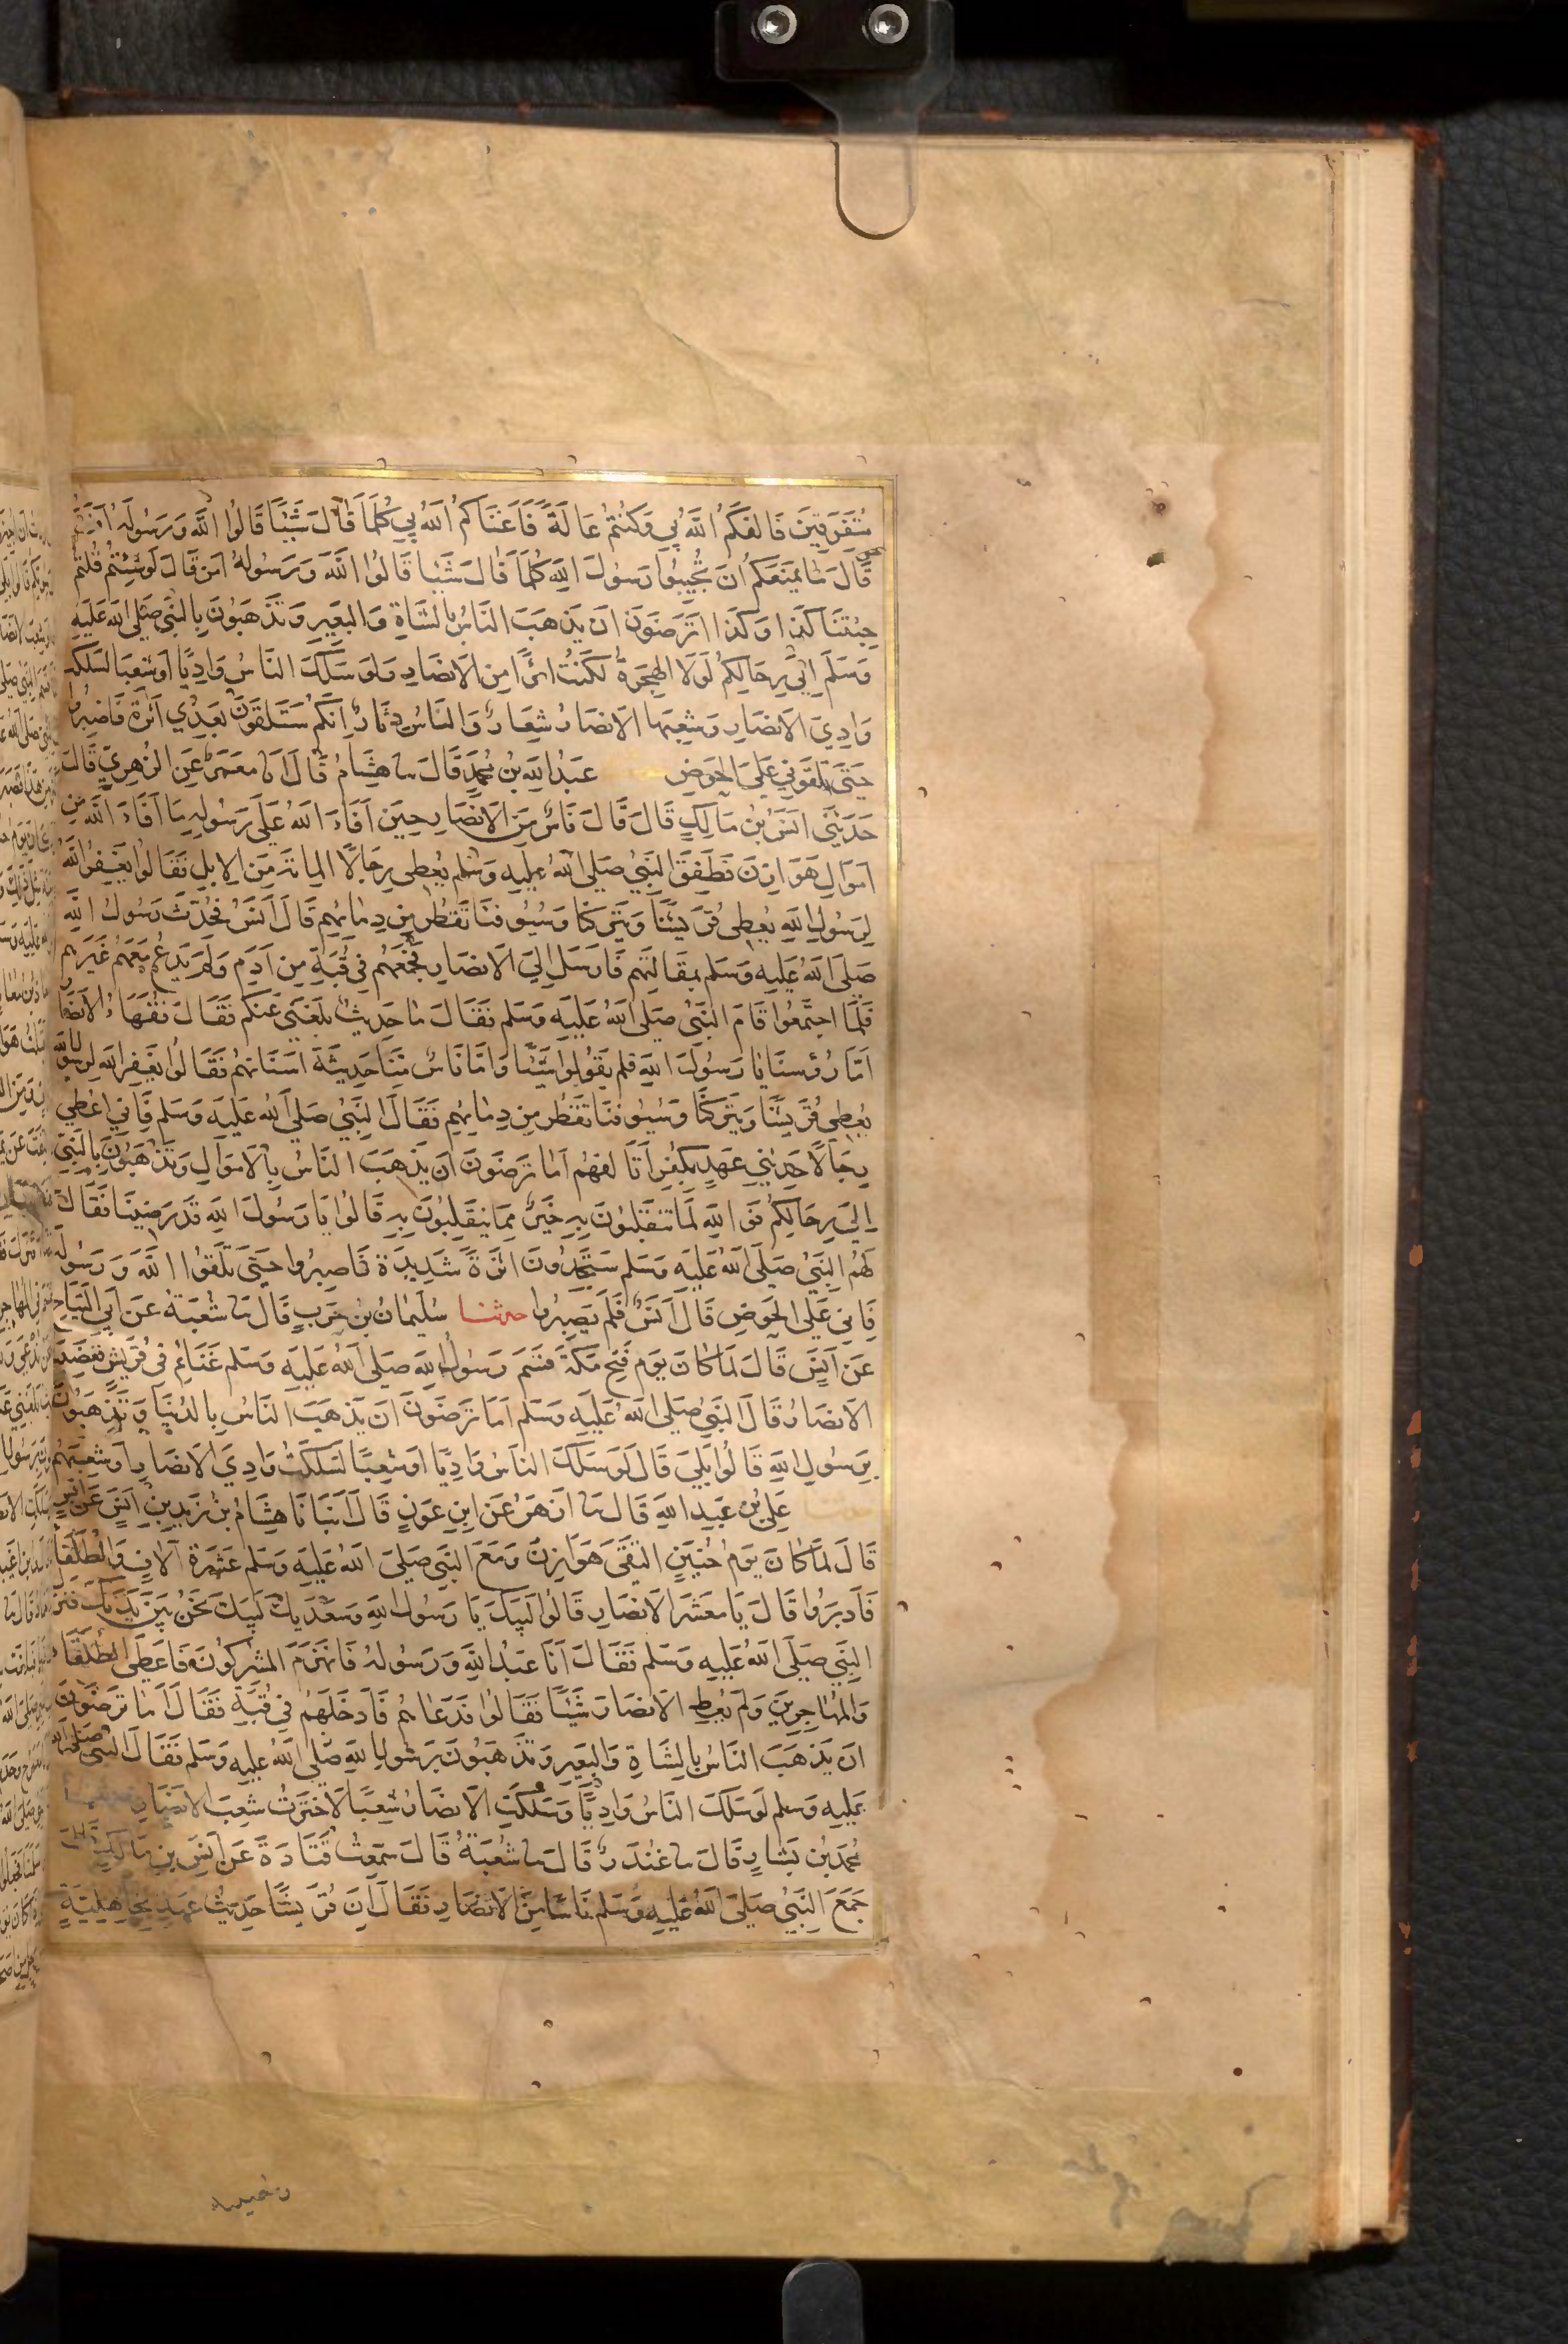 متفرقين فالفكم الله بي وكنتم عالة فاغناكم الله بي كلما قال شيئا قالوا الله ورسوله امن
قال ما يمنعكم ان تجيبوا رسول الله كلما قال شيئا قالوا الله ورسوله امن قال لو شئتم قلتم
جئتنا كذا وكذا اترضون ان يذهب الناس بالشاة والبعير وتذهبون بالنبي صلى الله عليه
وسلم الى رحالكم لولا الهجرة لكنت امرًا من الانصار ولو سلك الناس واديا او شعبا لسلكت
وادي الانصار وشعبها الانصار شعار والناس دثار انكم ستلقون بعدي اثرة فاصبروا
حتى تلقوني على الحوض عبد الله بن محمد قال سا هشام قال انا معمر عن الزهري قال
حدثني انس بن مالك قال قال ناس من الانصار حين افاء الله على رسوله ما افاء الله من
اموال هوازن فطفق النبي صلى الله عليه وسلم يعطي رجالا الماية من الابل فقالوا يغفر الله
لرسول الله يعطي قريشا ويتركنا وسيوفنا تقطر من دمايهم قال انس فحدث رسول الله
صلى الله عليه وسلم بمقالتهم فارسل الى الانصار فجمعهم في قبة من ادم ولم يدع معهم غيرهم
فلما اجتمعوا قام النبي صلى الله عليه وسلم فقال ما حديث بلغني عنكم فقال فقهاء الانصار
اما رؤسنا يا رسول الله فلم يقولوا شيئا واما ناس منا حديثة اسنانهم فقالوا يغفر الله لرسول الله
يعطي قريشا ويتركنا وسيوفنا تقطر من دمايهم فقال النبي صلى الله عليه وسلم فاني اعطي
رجالا حديثي عهد بكفر اتالفهم اما ترضون ان يذهب الناس بالاموال وتذهبون بالنبي
الى رحالكم فوالله لما تنقلبون به خير مما ينقلبون به قالوا يا رسول الله قد رضينا فقال
لهم النبي صلى الله عليه وسلم ستجدون اثرة شديدة فاصبروا حتى تلقوا الله ورسوله
فاني على الحوض قال انس فلم يصبروا حدثنا سليمان بن حرب قال سا شعبة عن ابي التياح
عن انس قال لما كان يوم فتح مكة قسم رسول الله صلى الله عليه وسلم غنائم في قريش فغضبت
الانصار قال النبي صلى الله عليه وسلم اما ترضون ان يذهب الناس بالدنيا وتذهبون
برسول الله قالوا بلى قال لو سلك الناس واديا او شعبا لسلكت وادي الانصار او شعبهم
علي بن عبد الله قال سا ازهر عن ابن عون قال انبانا هشام بن زيد بن انس عن انس
قال لما كان يوم حنين التقى هوازن ومع النبي صلى الله عليه وسلم عشرة آلاف والطلقا
فادبروا قال يا معشر الانصار قالوا لبيك يا رسول الله وسعديك لبيك نحن بين يديك فنزل
النبي صلى الله عليه وسلم فقال انا عبد الله ورسوله فانهزم المشركون فاعطى الطلقاء
والمهاجرين ولم يعط الانصار شيئا فقالوا فدعاهم فادخلهم في قبة فقال اما ترضون
ان يذهب الناس بالشاة والبعير وتذهبون برسول الله صلى الله عليه وسلم فقال النبي صلى الله
عليه وسلم لو سلك الناس واديا وسلكت الانصار شعبا لاخترت شعب الانصار
محمد بن بشار قال سا غندر قال سا شعبة قال سمعت قتادة عن انس بن مالك قال
جمع النبي صلى الله عليه وسلم ناسا من الانصار فقال ان قريشا حديث عهد بجاهلية